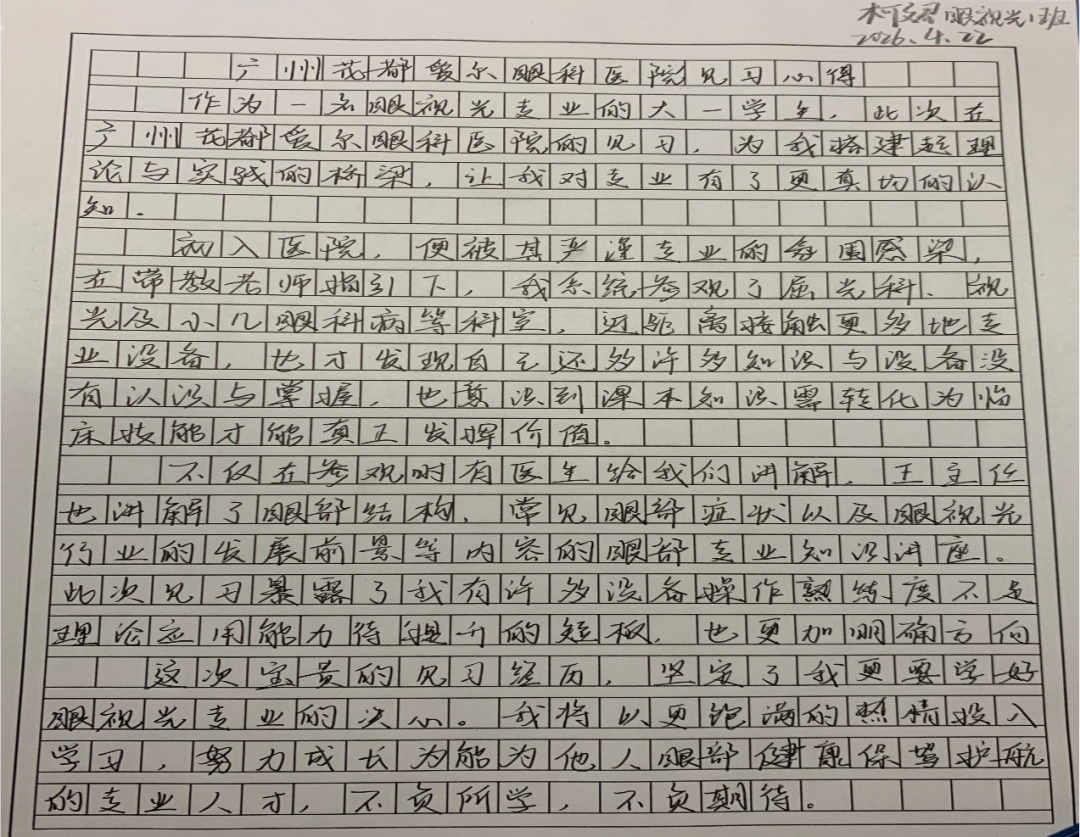 柯文君 眼视光1班
2026.4.22
广州花都爱尔眼科医院见习心得
作为一名眼视光专业的大一学生，此次在
广州花都爱尔眼科医院的见习，为我搭建起理
论与实践的桥梁，让我对专业有了更真切的认
知.
初入医院，便被其严谨专业的氛围感染，
在带教老师指引下，我系统参观了屈光科、视
光及小儿眼科病等科室，近距离接触更多地专
业设备，也才发现自己还够许多知识与设备没
有认识与掌握，也意识到课本知识需转化为临
床技能才能真正发挥价值。
不仅在参观时有医生给我们讲解，王主任
也讲解了眼部结构、常见眼部症状以及眼视光
行业的发展前景等内容的眼部专业知识讲座。
此次见习暴露了我有许多设备操作熟练度不足
理论应用能力待提升的短板，也更加明确方向
这次宝贵的见习经历，坚定了我更要学好
眼视光专业的决心。我将以更饱满的热情投入
学习，努力成长为能为他人眼部健康保驾护航
的专业人才，不负所学，不负期待。